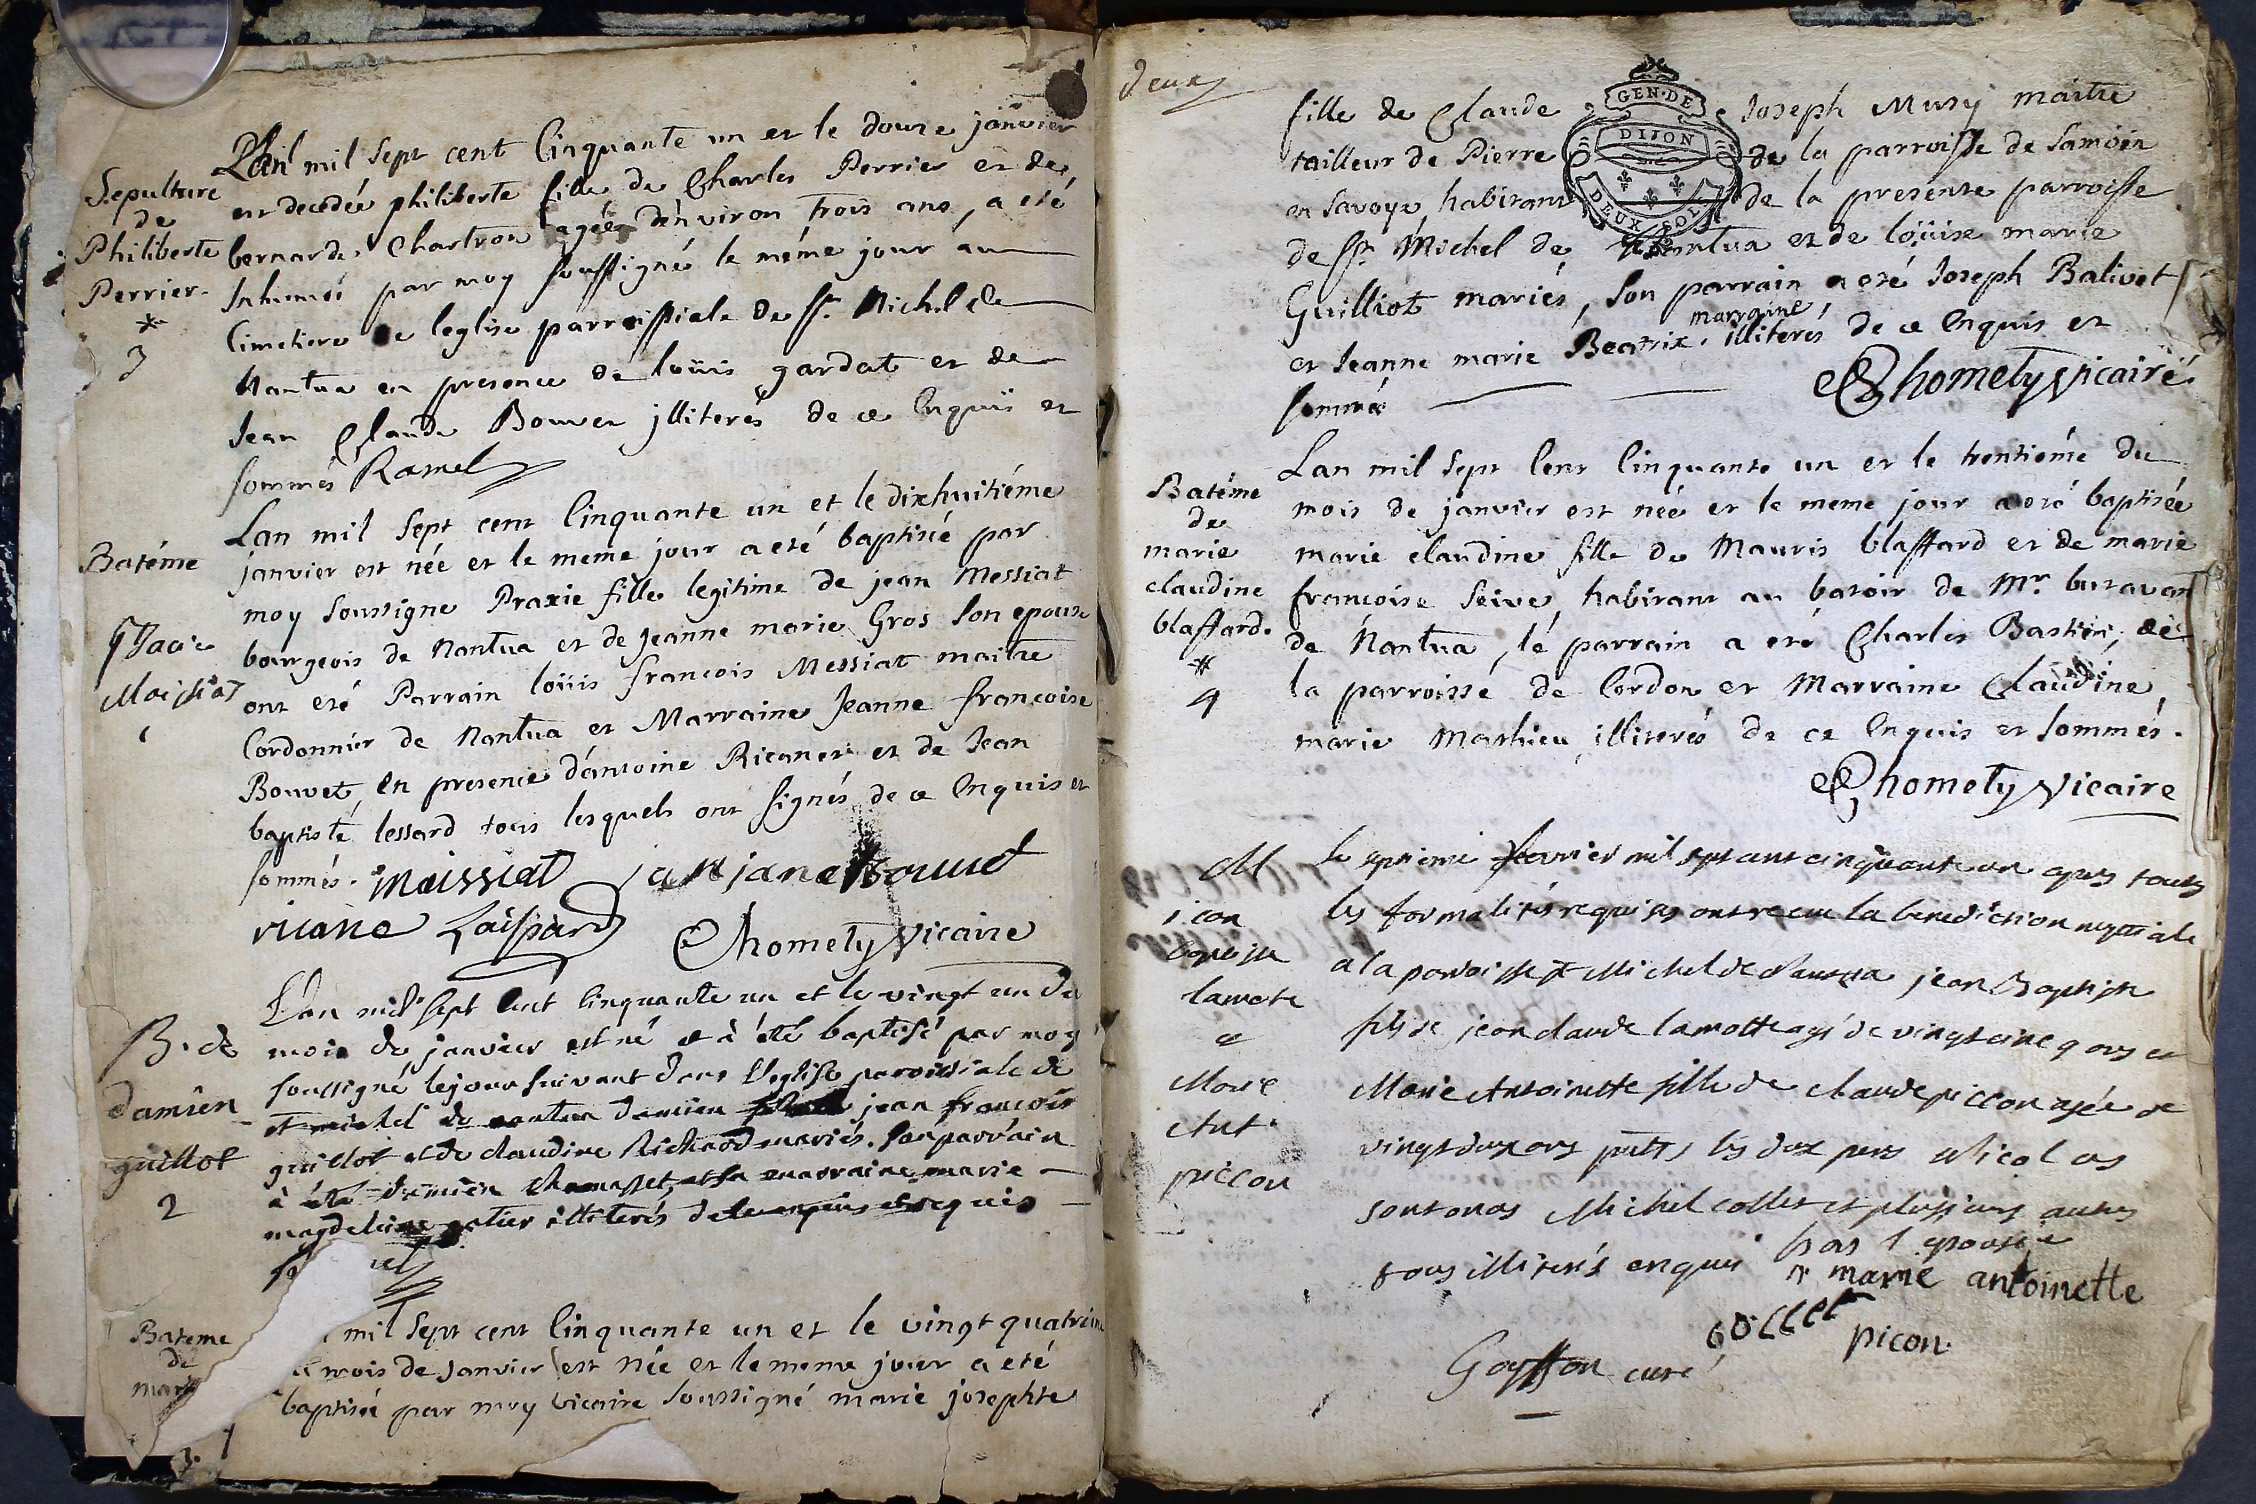 Sepulture
de
Philiberte
Perrier.
*
3
Lan mil sept cent Cinquante un et le douze janvier
est decedée philiberte fille de Charles Perrier et de
bernarde Chartron agée d'environ trois ans, a eté
Inhumé par moy soussigné le méme jour au
Cimetiere de leglise parroissiale de St. Michel de
Nantua en presence de loüis gardat et de
Jean Claude Bouvet jlliterés de ce Enquis et
sommés Ramel
Batéme
Maissiat
1
Lan mil sept cent Cinquante un et le dixhuitiéme
janvier est née et le meme jour a eté baptisée par
moy soussigne Praxie fille legitime de jean Messiat
bourgeois de Nantua et de jeanne marie Gros son epouse
ont eté Parrain loüis francois Messiat maitre
Cordonnier de Nantua et Marraine Jeanne francoise
Bouvet, En presence d'antoine Ricanet et de Jean
baptiste lessard tous lesquels ont signés de ce Enquis et
sommés. Maissiat
Chomety Vicaire
B. de
Damien
guillot
2
L'an mil sept Cent Cinquante un et le vingt un du
mois de janvier est né et à été baptisé par moy
soussigné le jour suivant dans L'eglise paroissiale de
st michel de nantua damien jean francois
guillot et de claudine Richard mariés. son parrain
à été Damien et sa marraine marie
magdeleine illiterés de ce enquis et requis
Bateme
de
mari
3.
mil sept cent Cinquante un et le vingt quatrieme
mois de Janvier est née et le meme jour a eté
baptisée par moy vicaire soussigné marie josephte
deux
GEN·DE
DIJON
DEUX SOLS
fille de Claude Joseph Musy maitre
tailleur de Pierre de la parroisse de Samöen
en Savoye, habitant de la presente parroisse
de St. Michel de Nantua et de loüise marie
Guilliot mariés, son parrain a eté Joseph Balivet
et Jeanne marie Beatrix marraine, illiterés de ce Enquis et
sommés Chomety Vicaire
Batéme
de
marie
claudine
blaffard.
*
4
Lan mil sept Cent Cinquante un et le trentiéme du
mois de janvier est née et le meme jour a eté baptisée
marie claudine fille de Mauris blaffard et de marie
francoise Seive, habitant au batoir de Mr. butavan
de Nantua, le parrain a eté Charles Bastien, de
la parroisse de Cordon et Marraine Claudine
marie Mathieu illiterés de ce Enquis et sommés.
Chomety Vicaire
M
baptiste
lamote
et
Marie
Ant.
piccon
le septieme fevrier mil sept cent cinquante un apres toutes
les formalités requises ont receu la benediction nuptiale
a la paroisse St Michel de Nantua jean Baptiste
fils de jean claude lamotte agé de vingt cinq ans et
Marie Antoinette fille de claude piccon agée de
vingt deux ans pnts les deux peres Nicolas
Michel collet et plusieurs autres
tous illiterés enquis
marie antoinette
picon
collet
curé